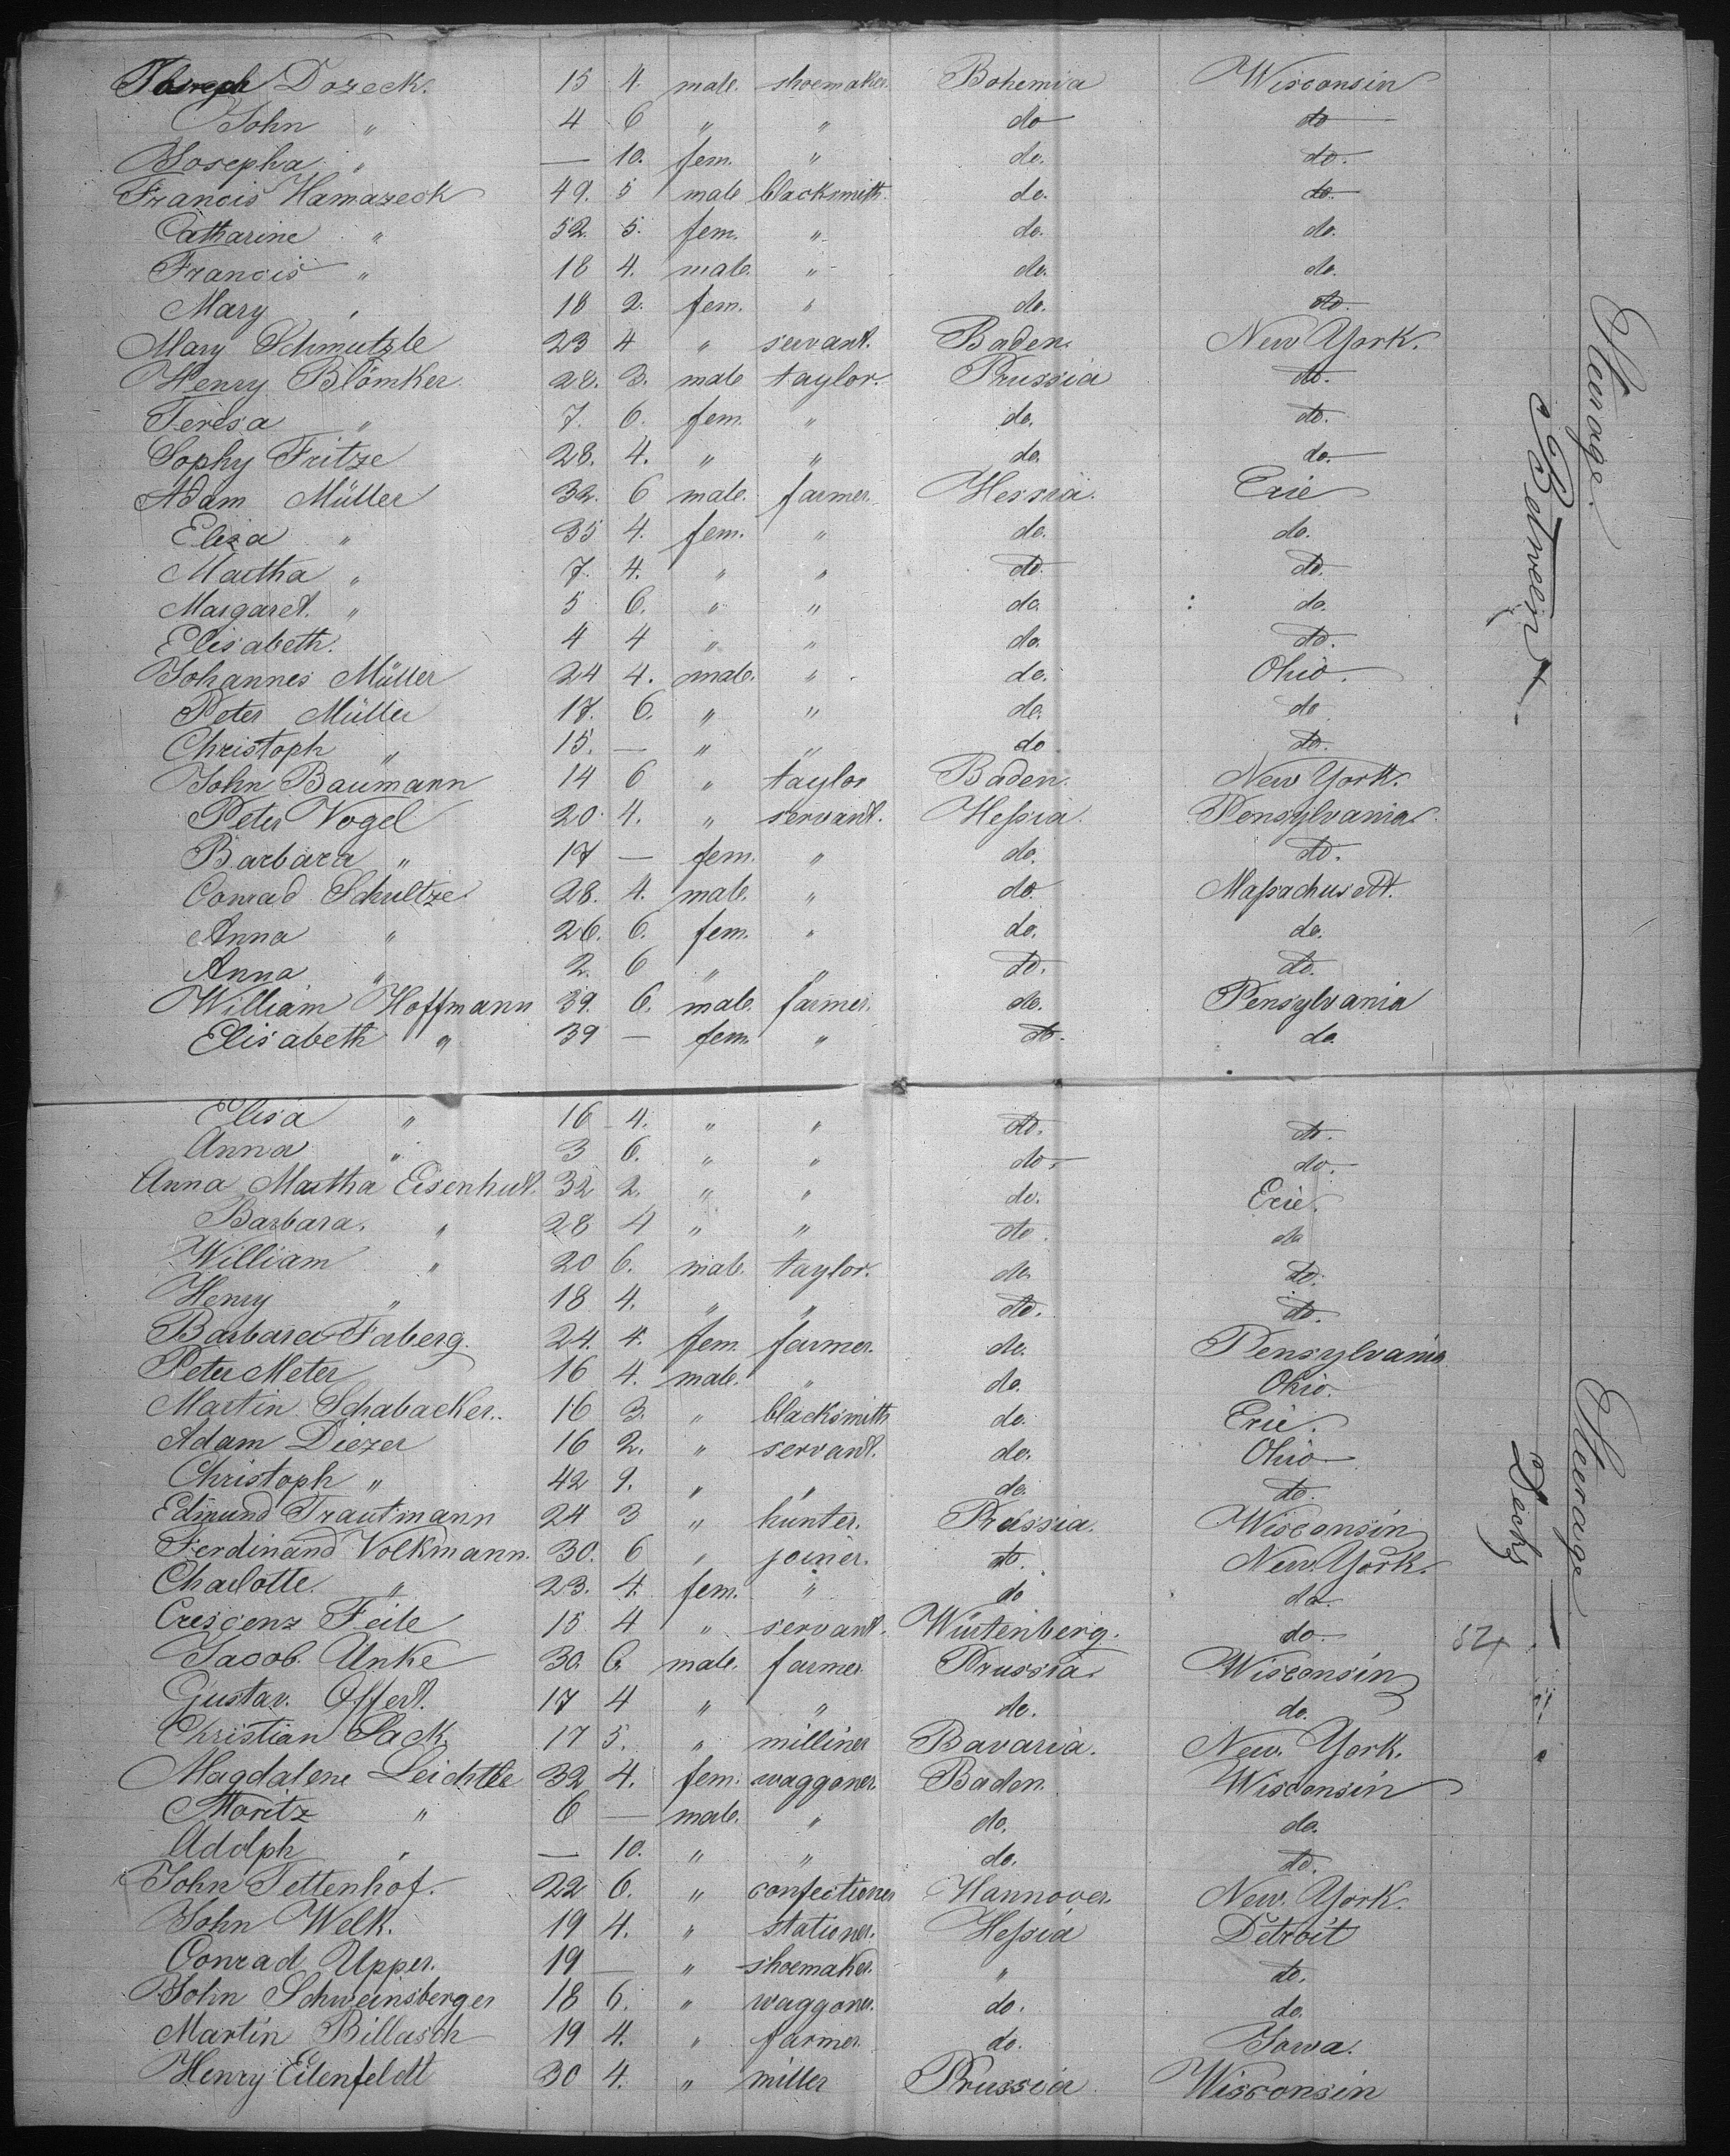 Joseph Dozeck. 15 4. male. shoemaker. Bohemia Wisconsin
John " 4 6 " " do do
Josepha " — 10. fem. " do. do.
Francis Hamazeck 49. 5 male blacksmith. do. do.
Catharine " 52. 5. fem. " do. do.
Francis " 18 4. male. " do. do.
Mary " 18 2. fem. " do. do.
Mary Schmutzle 23 4 " servant. Baden. New York.
Henry Blömker 28. 3. male taylor. Prussia do.
Teresa " 7. 6. fem. " do. do.
Sophy Fritze 28. 4. " " do. do.
Adam Müller 32. 6 male. farmer. Hessia. Erie
Elisa " 35 4. fem. " do. do.
Martha " 7. 4. " " do. do.
Margaret. " 5 6. " " do. do.
Elisabeth. 4 4 " " do. do.
Johannes Müller 24 4. male. " do. Ohio.
Peter Müller 17. 6. " " do. do
Christoph " 15. — " " do do.
John Baumann 14 6 " taylor Baden. New York.
Peter Vogel 20. 4. " servant. Heſsia. Pensylvania.
Barbara " 17 — fem. " do. do.
Conrad Schultze 28. 4. male. " do. Maſsachusett.
Anna " 26. 6. fem. " do. do.
Anna " 2. 6 " " do. do.
William Hoffmann 39. 6. male. farmer. do. Pensylvania
Elisabeth " 39 — fem. " do. do.
Elisa " 16 4. " " do. do.
Anna " 3 6. " " do. do.
Anna Martha Eisenhut. 32 2. " " do. Erie.
Barbara. " 28 4 " " do. do
William " 20 6. male. taylor. do. do.
Henry " 18 4. " " do. do.
Barbara Faberg. 24. 4. fem. farmer. do. Pensylvania
Peter Meter 16 4. male. " do. Ohio.
Martin Schabacker. 16 3. " blacksmith do. Erie.
Adam Diezer 16 2. " servant. do. Ohio
Christoph " 42 9. " " do. do.
Edmund Trautmann 24 3 " hunter. Prussia. Wisconsin
Ferdinand Volkmann. 30. 6 " joiner. do. New York.
Charlotte. " 23. 4. fem. " do do.
Crescenz Feile 15 4 " servant. Würtenberg. do.
Jacob. Unke 30. 6. male. farmer. Prussia. Wisconsin
Gustav. Offert. 17 4 " " do. do.
Christian Sack. 17 5. " milliner Bavaria. New York.
Magdalene Leichtle 32 4. fem. waggoner. Baden. Wisconsin
Moritz " 6 — male. " do. do.
Adolph " — 10. " " do. do.
John Tettenhof. 22 6. " confectioner Hannover. New York.
John Welk. 19 4. " stationer. Heſsia Detroit
Conrad Upper. 19 — " shoemaker. " do.
John Schweinsberger 18 6. " waggoner. do. do.
Martin Billasch 19 4. " farmer. do. Iowa.
Henry Eilenfeldt 30 4. " miller Prussia Wisconsin
Steerage.
Between
Steerage
Decks